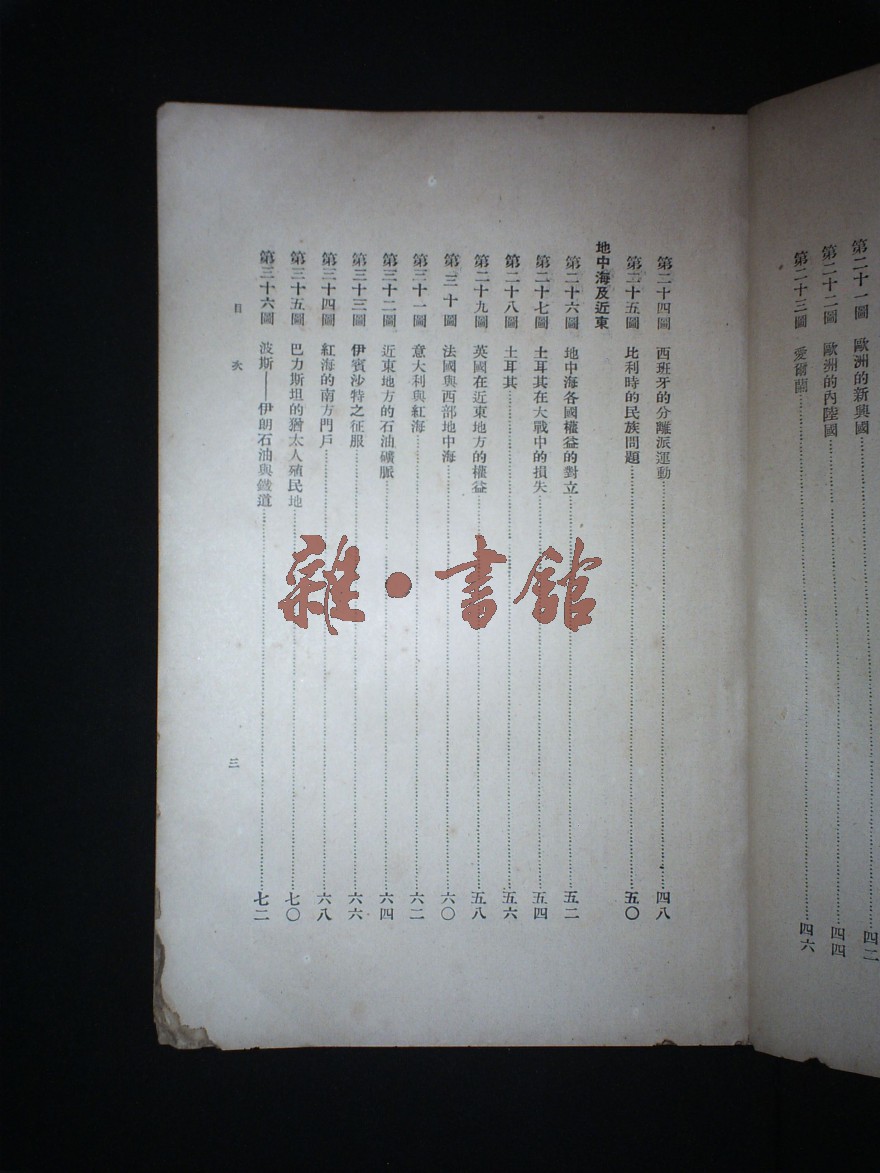 第二十一圖　歐洲的新興國……四二
第二十二圖　歐洲的內陸國……四四
第二十三圖　愛爾蘭……四六
第二十四圖　西班牙的分離派運動……四八
第二十五圖　比利時的民族問題……五〇
地中海及近東
第二十六圖　地中海各國權益的對立……五二
第二十七圖　土耳其在大戰中的損失……五四
第二十八圖　土耳其……五六
第二十九圖　英國在近東地方的權益……五八
第三十圖　法國與西部地中海……六〇
第三十一圖　意大利與紅海……六二
第三十二圖　近東地方的石油礦脈……六四
第三十三圖　伊賓沙特之征服……六六
第三十四圖　紅海的南方門戶……六八
第三十五圖　巴力斯坦的猶太人殖民地……七〇
第三十六圖　波斯——伊朗石油與鐵道……七二
目次　三
雜·書館